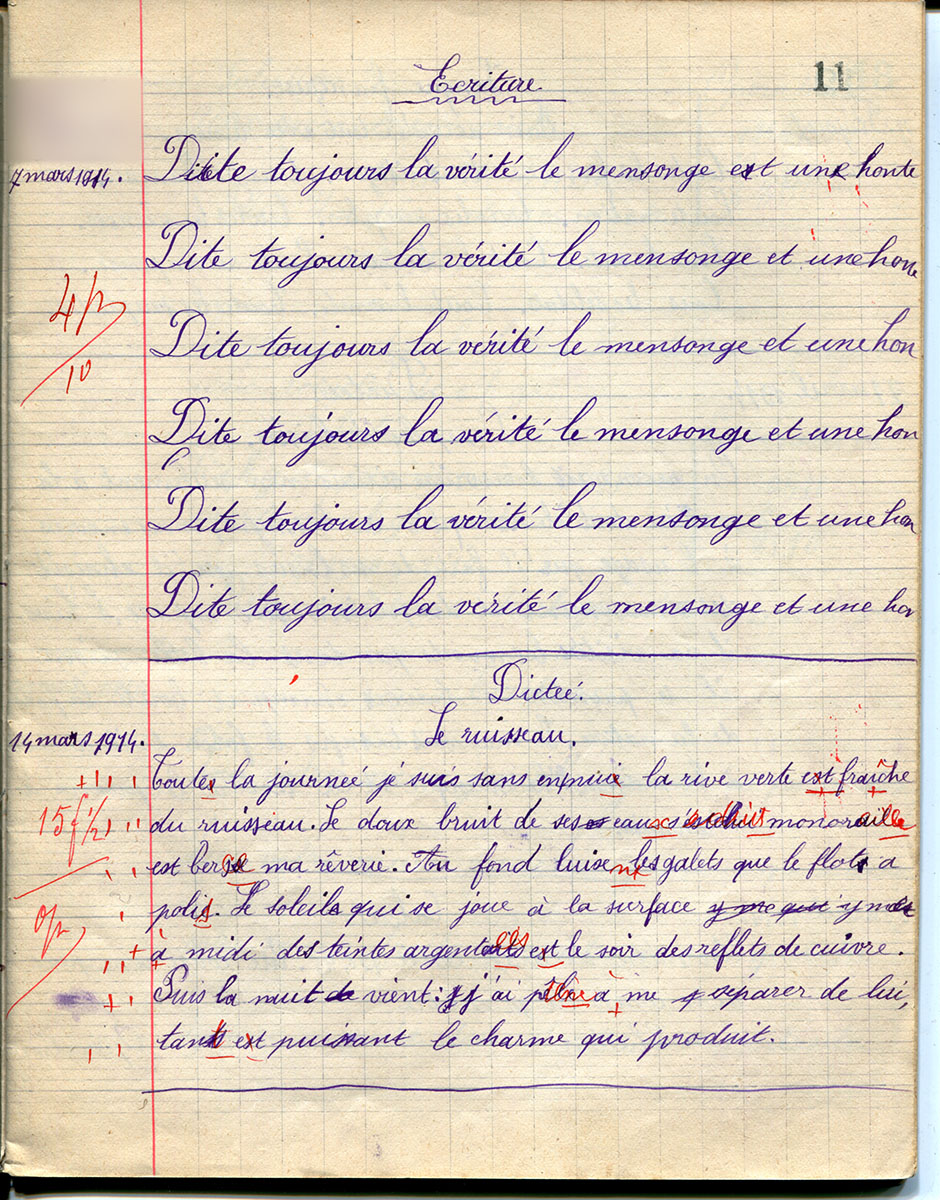 Ecriture
11
7 mars 1914.
Dite toujours la vérité le mensonge est une honte
Dite toujours la vérité le mensonge et une honte
4 p
10
Dite toujours la vérité le mensonge et une hon
Dite toujours la vérité le mensonge et une hon
Dite toujours la vérité le mensonge et une hon
Dite toujours la vérité le mensonge et une hon
Dicteé.
Le ruisseau.
14 mars 1914.
Toute la journeé je suis sans ennui la rive verte et fraîche
15 f 1/2
du ruisseau. Le doux bruit de ses eaux
est berce ma rêverie. Au fond luisent les galets que le flot a
0 p
polis. Le soleil qui se joue à la surface y met
à midi des teintes argenteés et le soir des reflets de cuivre.
Puis la nuit vient: j'ai peine à me séparer de lui,
tant est puissant le charme qui produit.